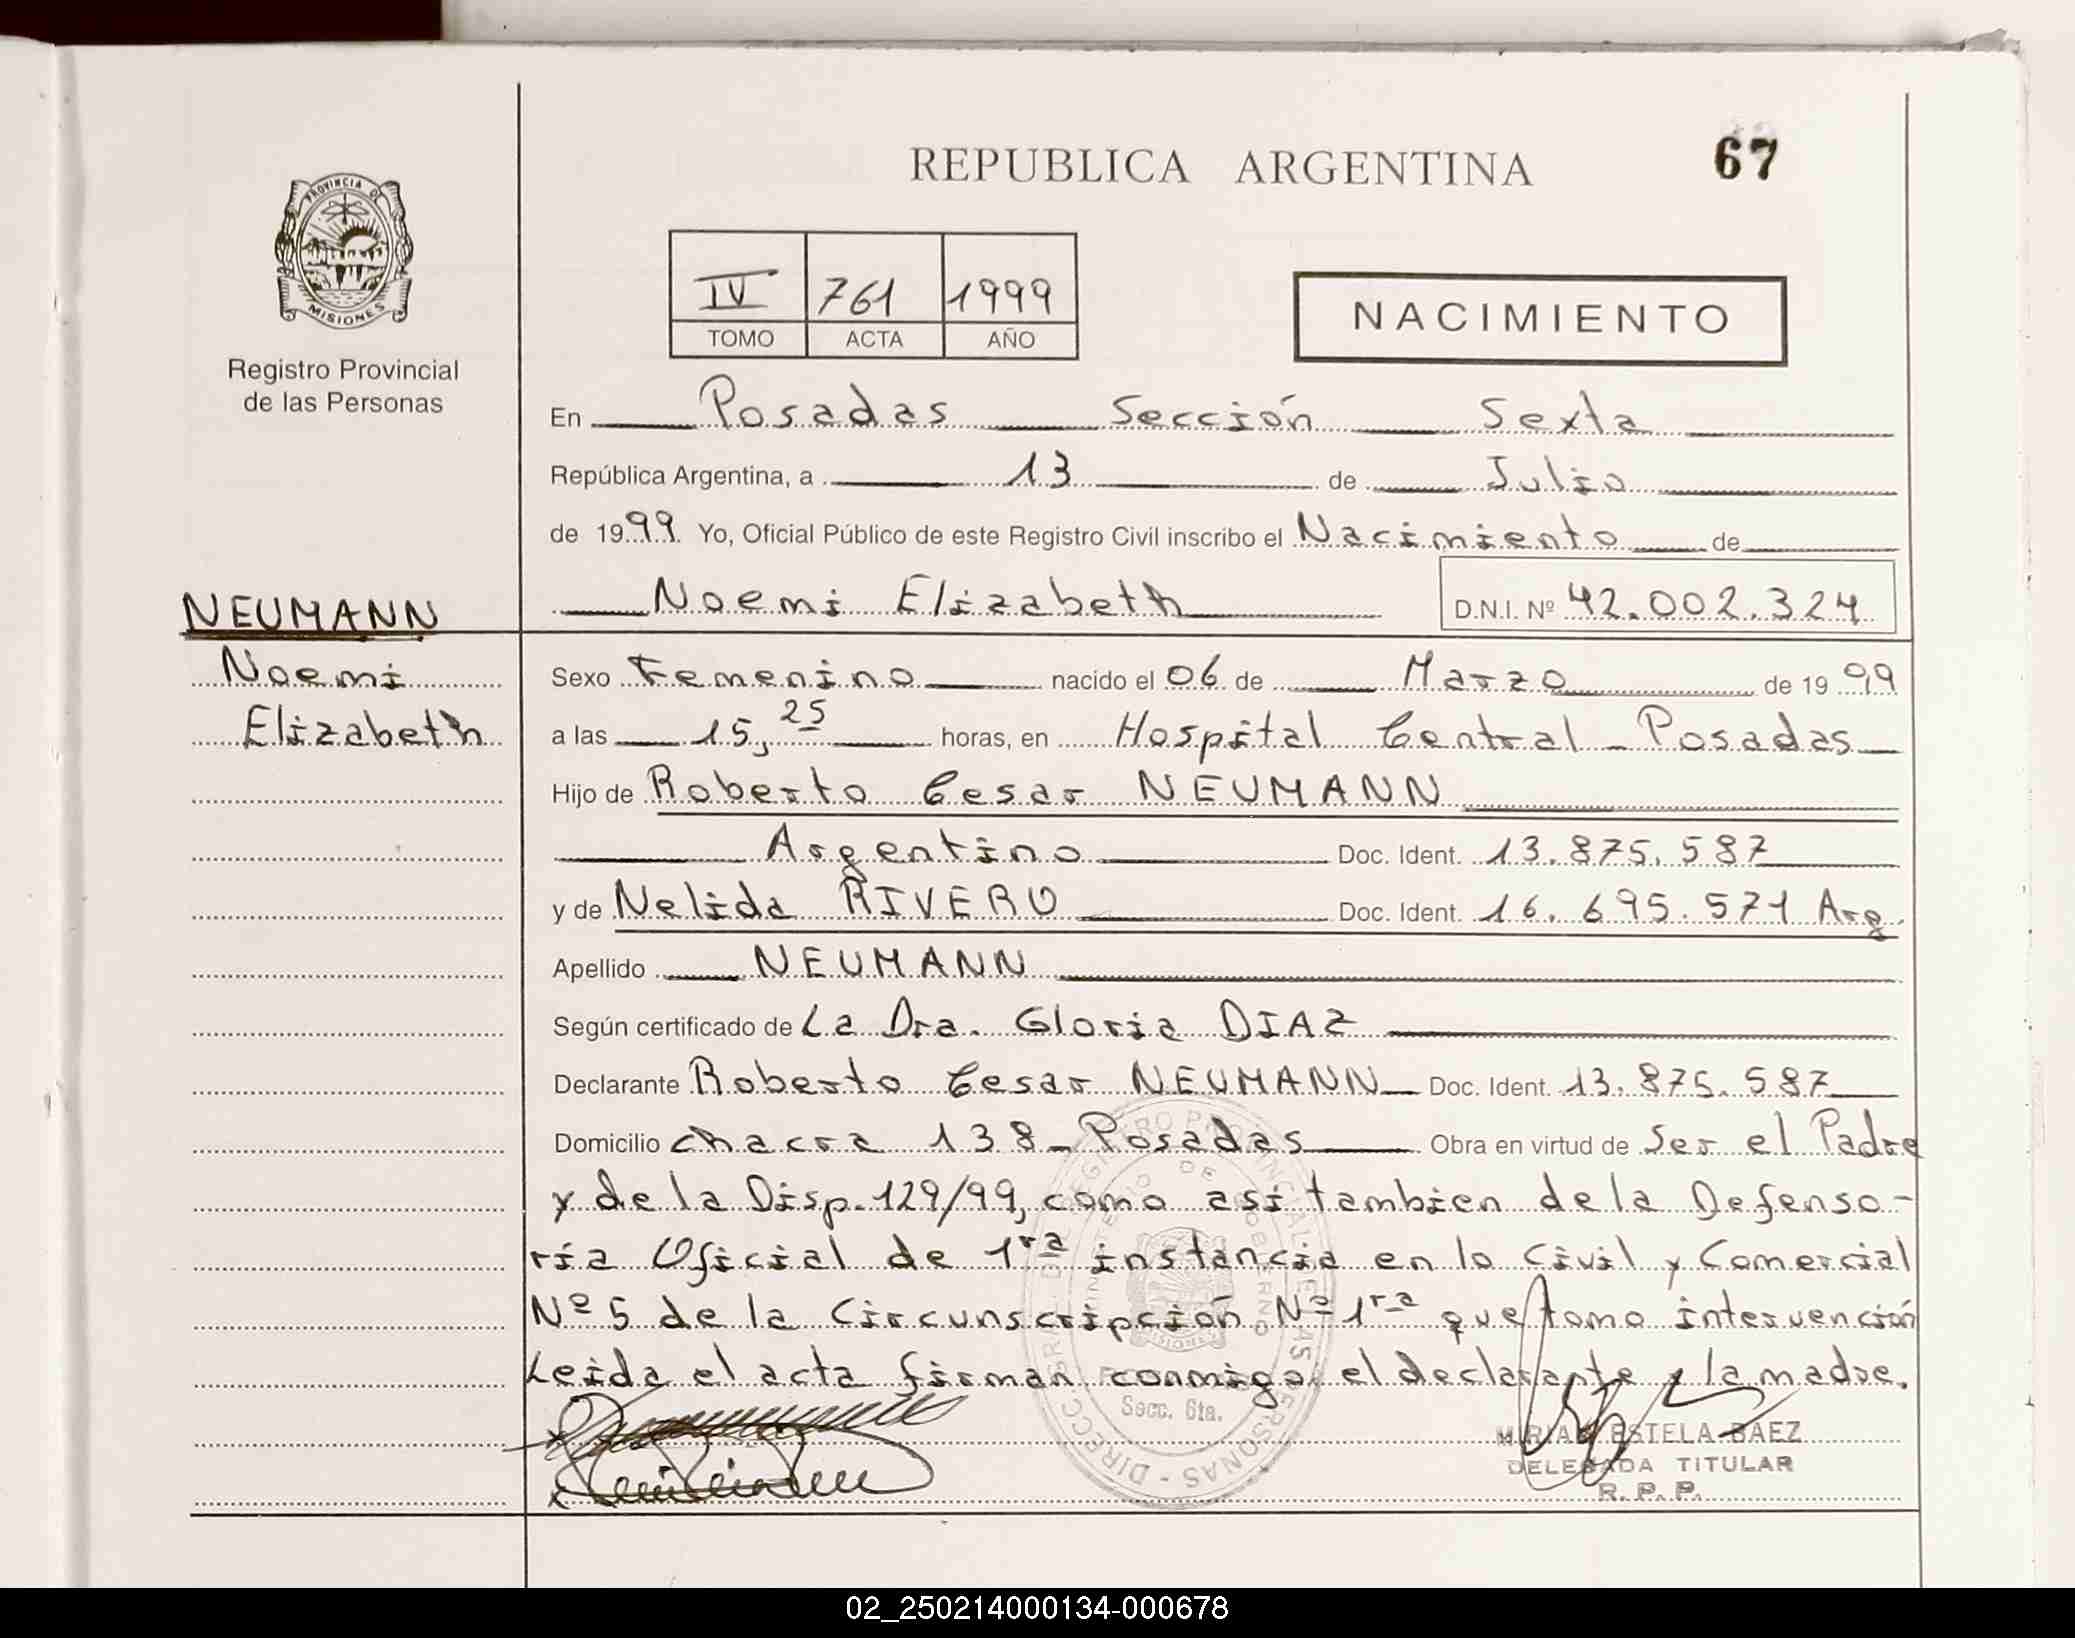 REPUBLICA ARGENTINA
67
PROVINCIA DE
MISIONES
Registro Provincial
de las Personas
IV 761 1999
TOMO ACTA AÑO
NACIMIENTO
En Posadas Sección Sexta
República Argentina, a 13 de Julio
de 1999 Yo, Oficial Público de este Registro Civil inscribo el Nacimiento de
Noemi Elizabeth D.N.I. Nº 42.002.324
NEUMANN
Noemi
Elizabeth
Sexo Femenino nacido el 06 de Marzo de 1999
a las 15,25 horas, en Hospital Central - Posadas
Hijo de Roberto Cesar NEUMANN
Argentino Doc. Ident. 13.875.587
y de Nelida RIVERO Doc. Ident. 16.695.571 Arg.
Apellido NEUMANN
Según certificado de La Dra. Gloria DIAZ
Declarante Roberto Cesar NEUMANN Doc. Ident. 13.875.587
Domicilio chacra 138 - Posadas Obra en virtud de Ser el Padre
y de la Disp. 129/99, como asi tambien de la Defenso-
ría Oficial de 1ra instancia en lo Civil y Comercial
Nº 5 de la Circunscripción Nº 1ra que tomo intervención
Leida el acta firman conmigo el declarante y la madre.
Secc. 6ta.
MIRIAM ESTELA BAEZ
DELEGADA TITULAR
R. P. P.
02_250214000134-000678